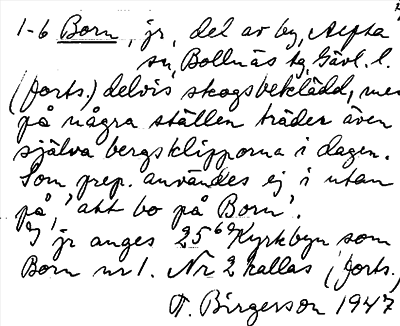 1-6 Born, jr, del av by, Alfta
sn, Bollnäs tg, Gävl. l.
(forts.) delvis skogsbeklädd, men
på några ställen träder även
själva bergsklipporna i dagen.
Som prep. användes ej i utan
på, 'att bo på Born'.
I jr anges 25⁶⁹ Kyrkbyn som
Born nr 1. Nr 2 kallas (forts.)
T. Birgerson 1947